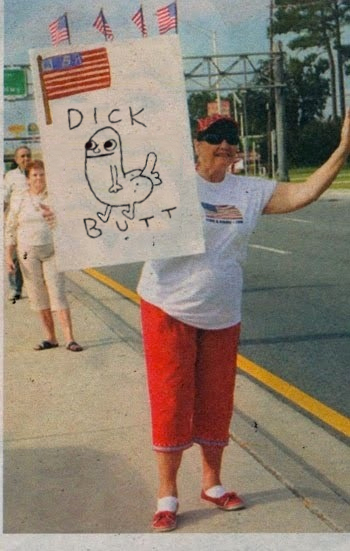 DICK
BUTT